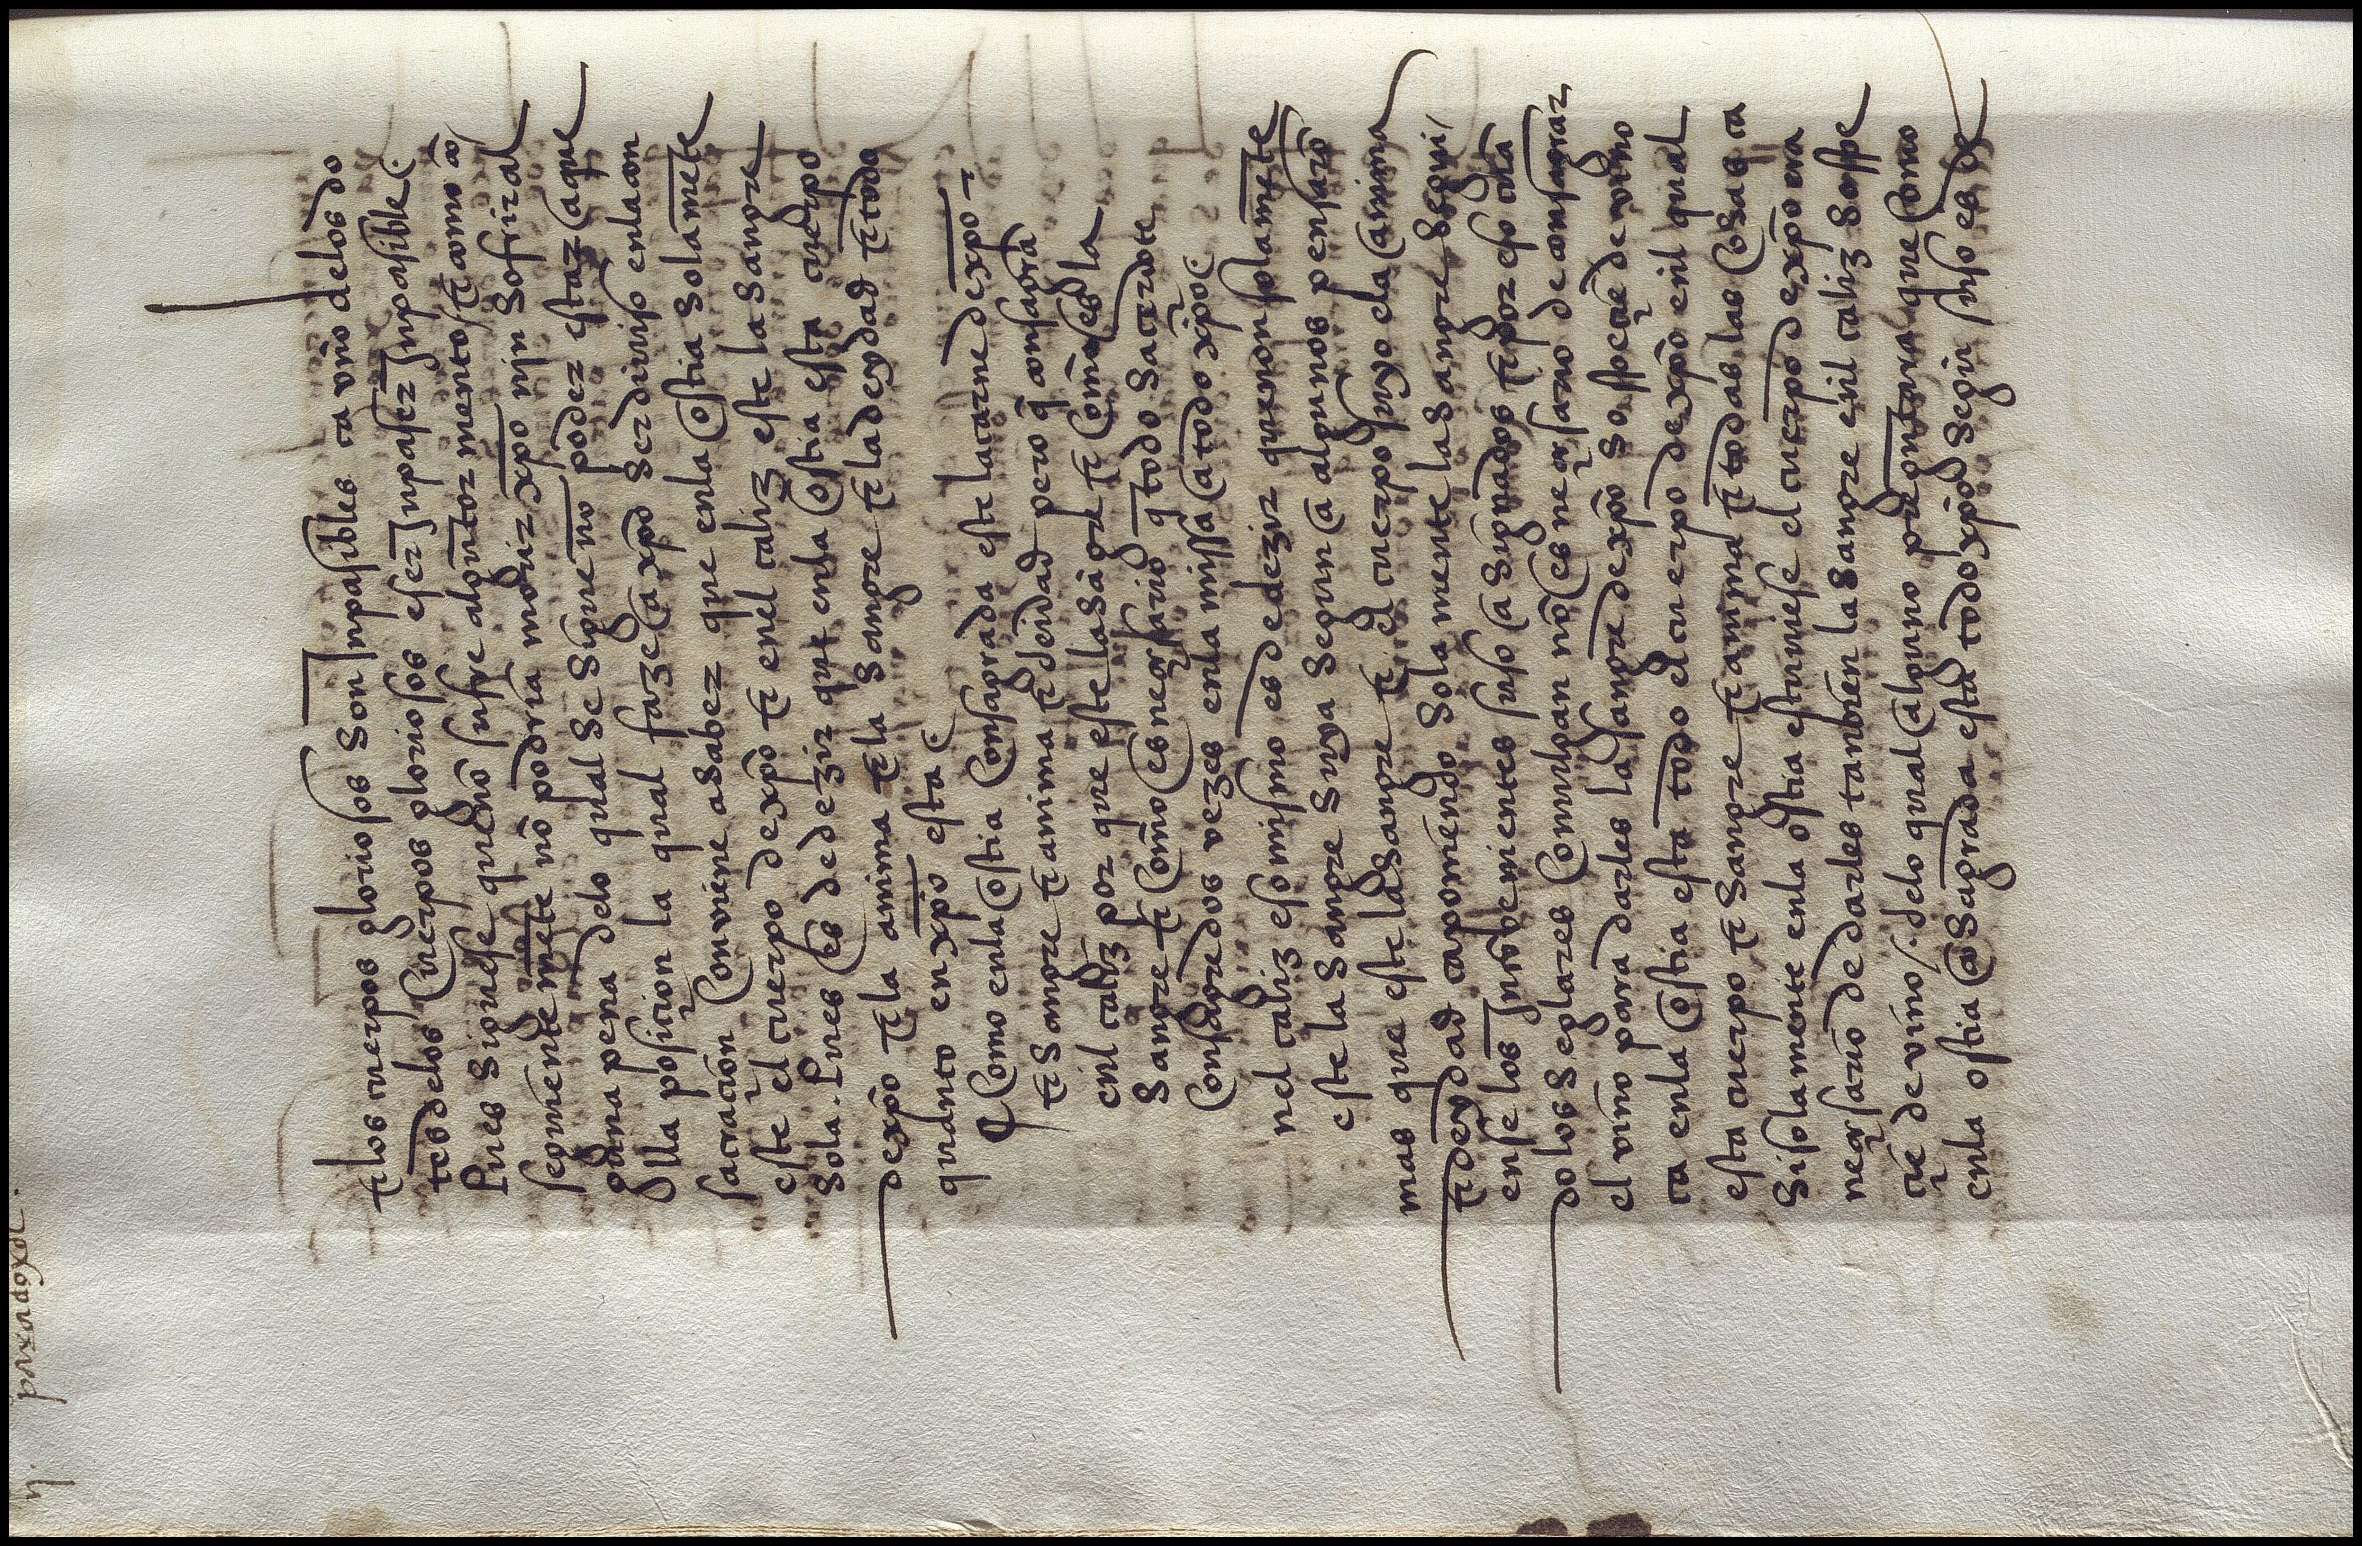 ij. paradoxa.
τ los cuerpos gloriosos son Jnpasibles ca vno delos do
tes delos cuerpos gloriosos es ser Jnpasible
Pues siguese que nō sufre algunt tormento τ como
seguiente mēte nō podria moriz xpō nin sofrir al
guna pena delo qual se sigue no podez estaz aque
lla posicion la qual faze a xpō ser diviso enla con
sacracion conviene a sabez que enla ostia solamēte
este el cuerpo de xpō τ enel caliz este la sangre
sola. Pues es de dezir que enla ostia esta cuerpo
de xpō τ la anima τ la sangre τ la deydad τ todo
quanto en xpō esta
¶ Como enla ostia consagrada este la carne de xpō
τ sangre τ anima τ deidad pero q̄ consagrā
enl caliz por que este la sāgre τ comō es la
sangre τ comō es necessario q̄ todo sacerdote
consagre dos vezes enla missa a todo xpō
nel caliz eso mismo es de dezir que non solamēte
este la sangre suya segun a algunos pensarō
mas que este la sangre τ el cuerpo suyo el a anima
τ deydad ca poniendo sola mente la sangre segui
ense los Jnconbenientes suso asignados τ por eso
do los seglares comulgan nō es necessario de consagraz
el vino para darles la sangre de xpō so specie de vino
ca enla ostia esta todo el cuerpo de xpō enl qual
esta cuerpo τ sangre τ anima τ todas las cosas ca
si sola mente enla ostia estuviese el cuerpo de xpō era
necessario de darles tanbien la sangre enl caliz so spe
cie de vino. delo qual alguno preguntara que como
enla ostia cōsagrada esta todo xpō segun suso es de